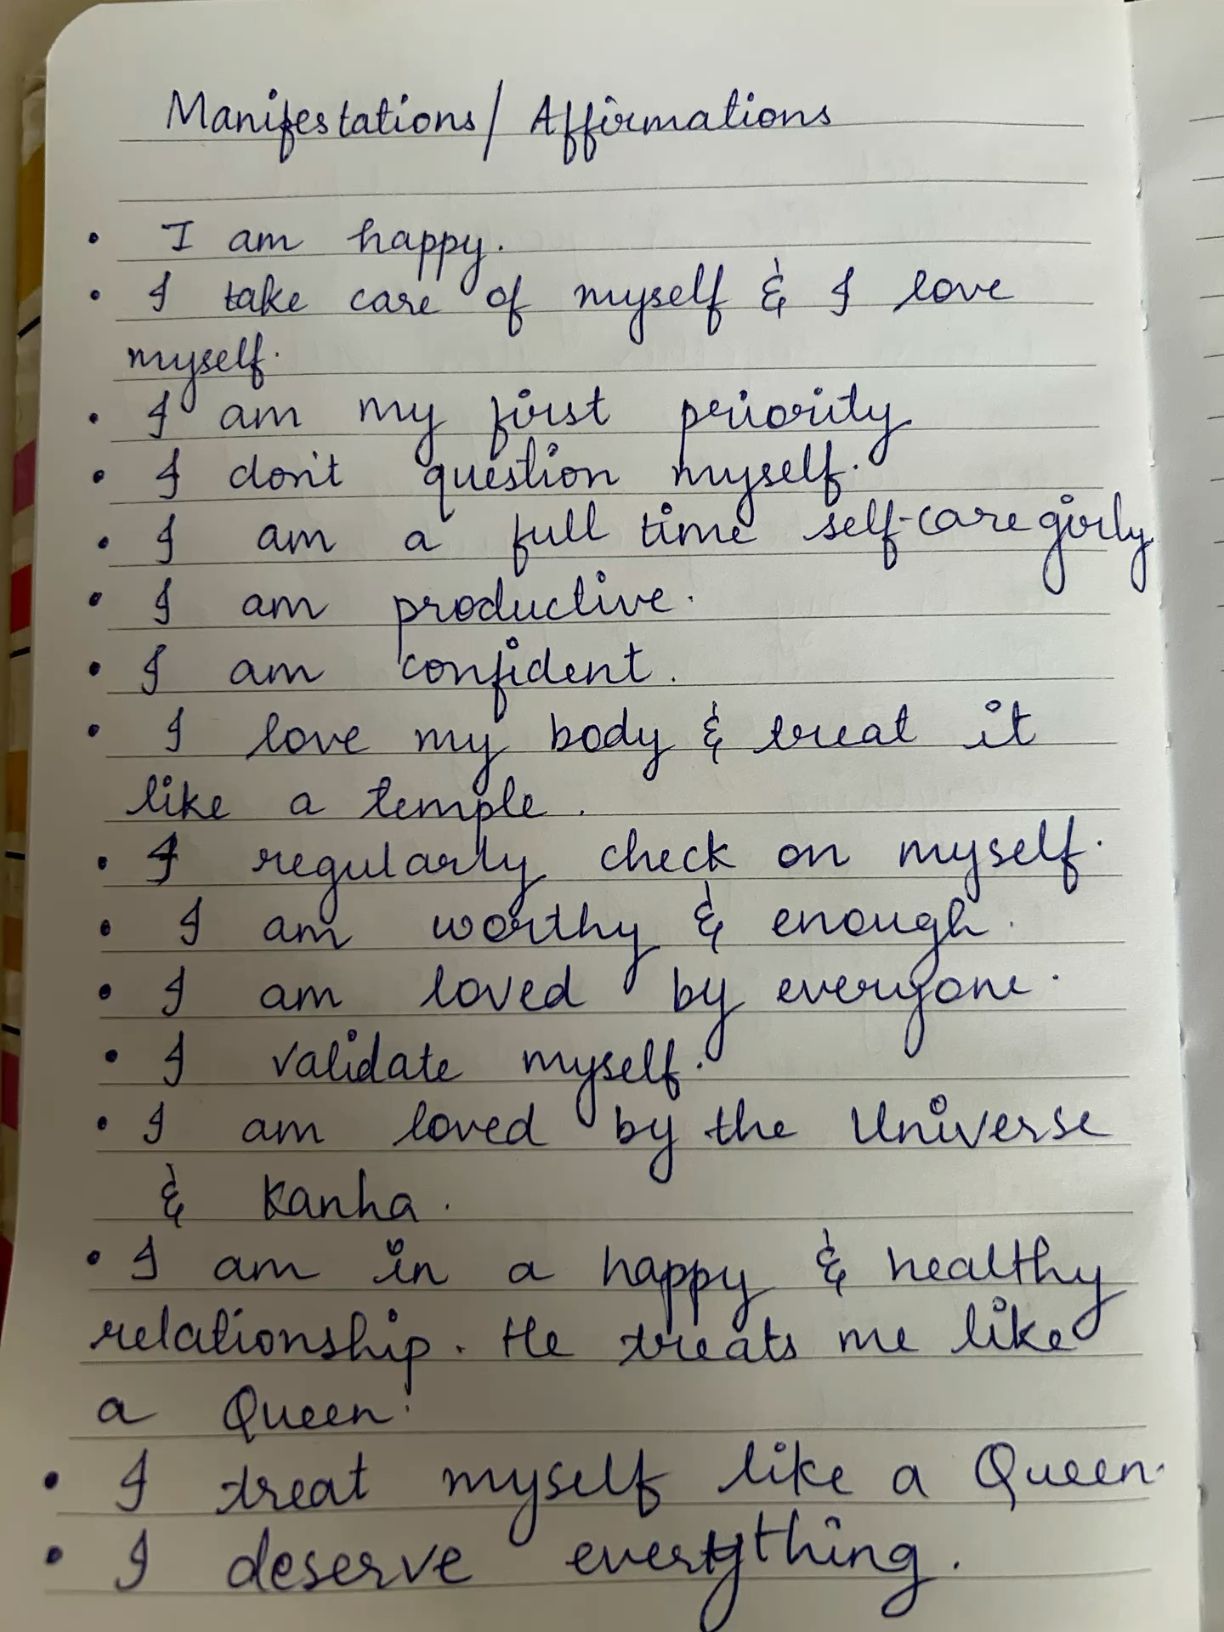 Manifestations/ Affirmations
• I am happy.
• I take care of myself & I love
myself.
• I am my first priority
• I don't question myself.
• I am a full time self-care girly
• I am productive.
• I am confident.
• I love my body & treat it
like a temple.
• I regularly check on myself.
• I am worthy & enough.
• I am loved by everyone.
• I validate myself.
• I am loved by the Universe
& Kanha.
• I am in a happy & healthy
relationship. He treats me like
a Queen.
• I treat myself like a Queen.
• I deserve everything.